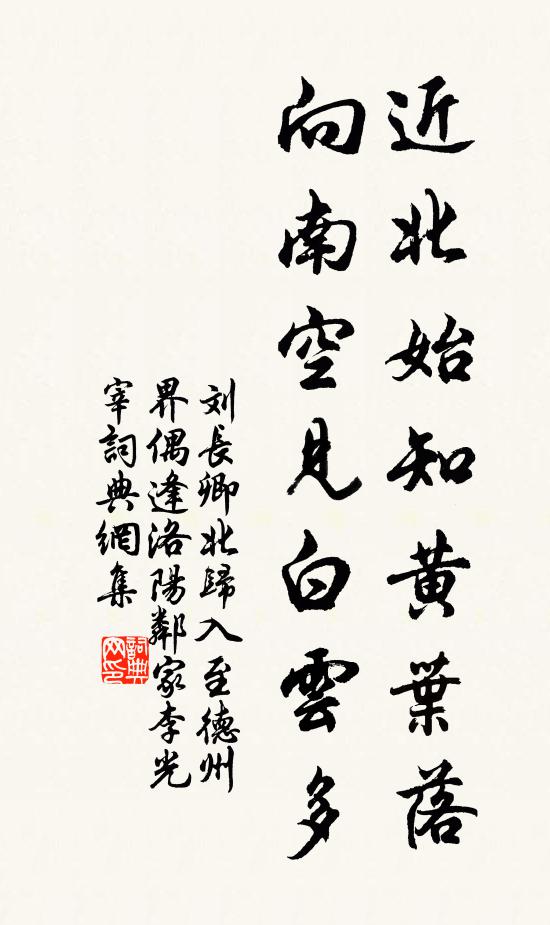 近北始知黄葉落
向南空見白雲多
刘長卿北歸入至德州
界偶逢洛陽鄰家李光
宰詞典網集
詞典網印